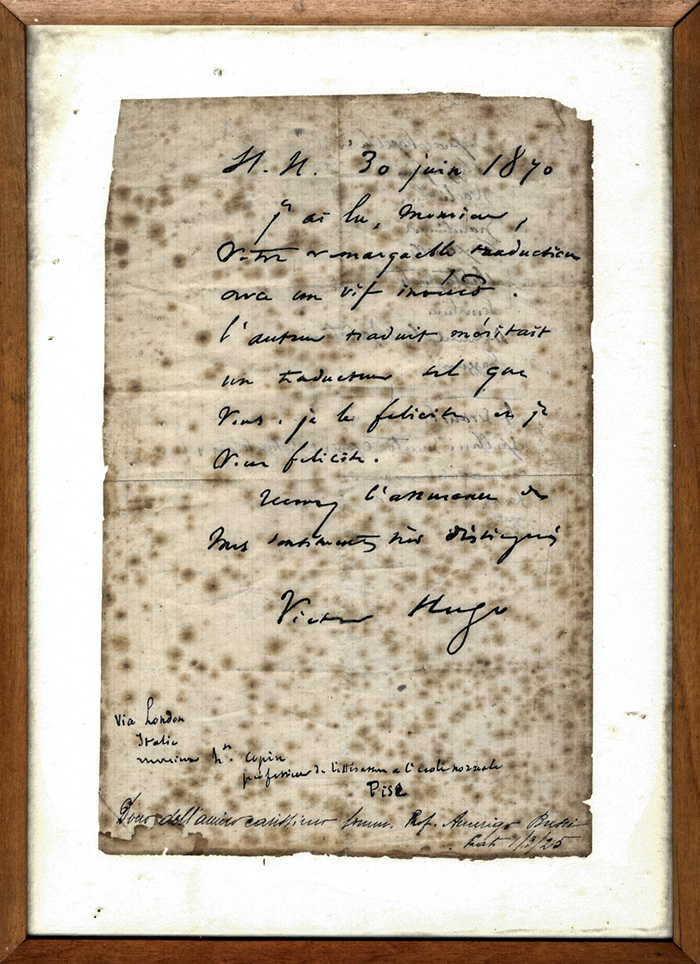 H. H. 30 juin 1870
j'ai lu, Monsieur,
Votre remarquable traduction
avec un vif intérêt.
l'auteur traduit méritait
un traducteur tel que
Vous. je le felicite et je
Vous felicite.
recevez l'assurance de
mes sentiments très distingués
Victor Hugo
Via London
Italie
monsieur
professeur de littérature a l'ecole normale
Pise
Dono dell'amico carissimo Comm. Prof. Amerigo
1/3/25